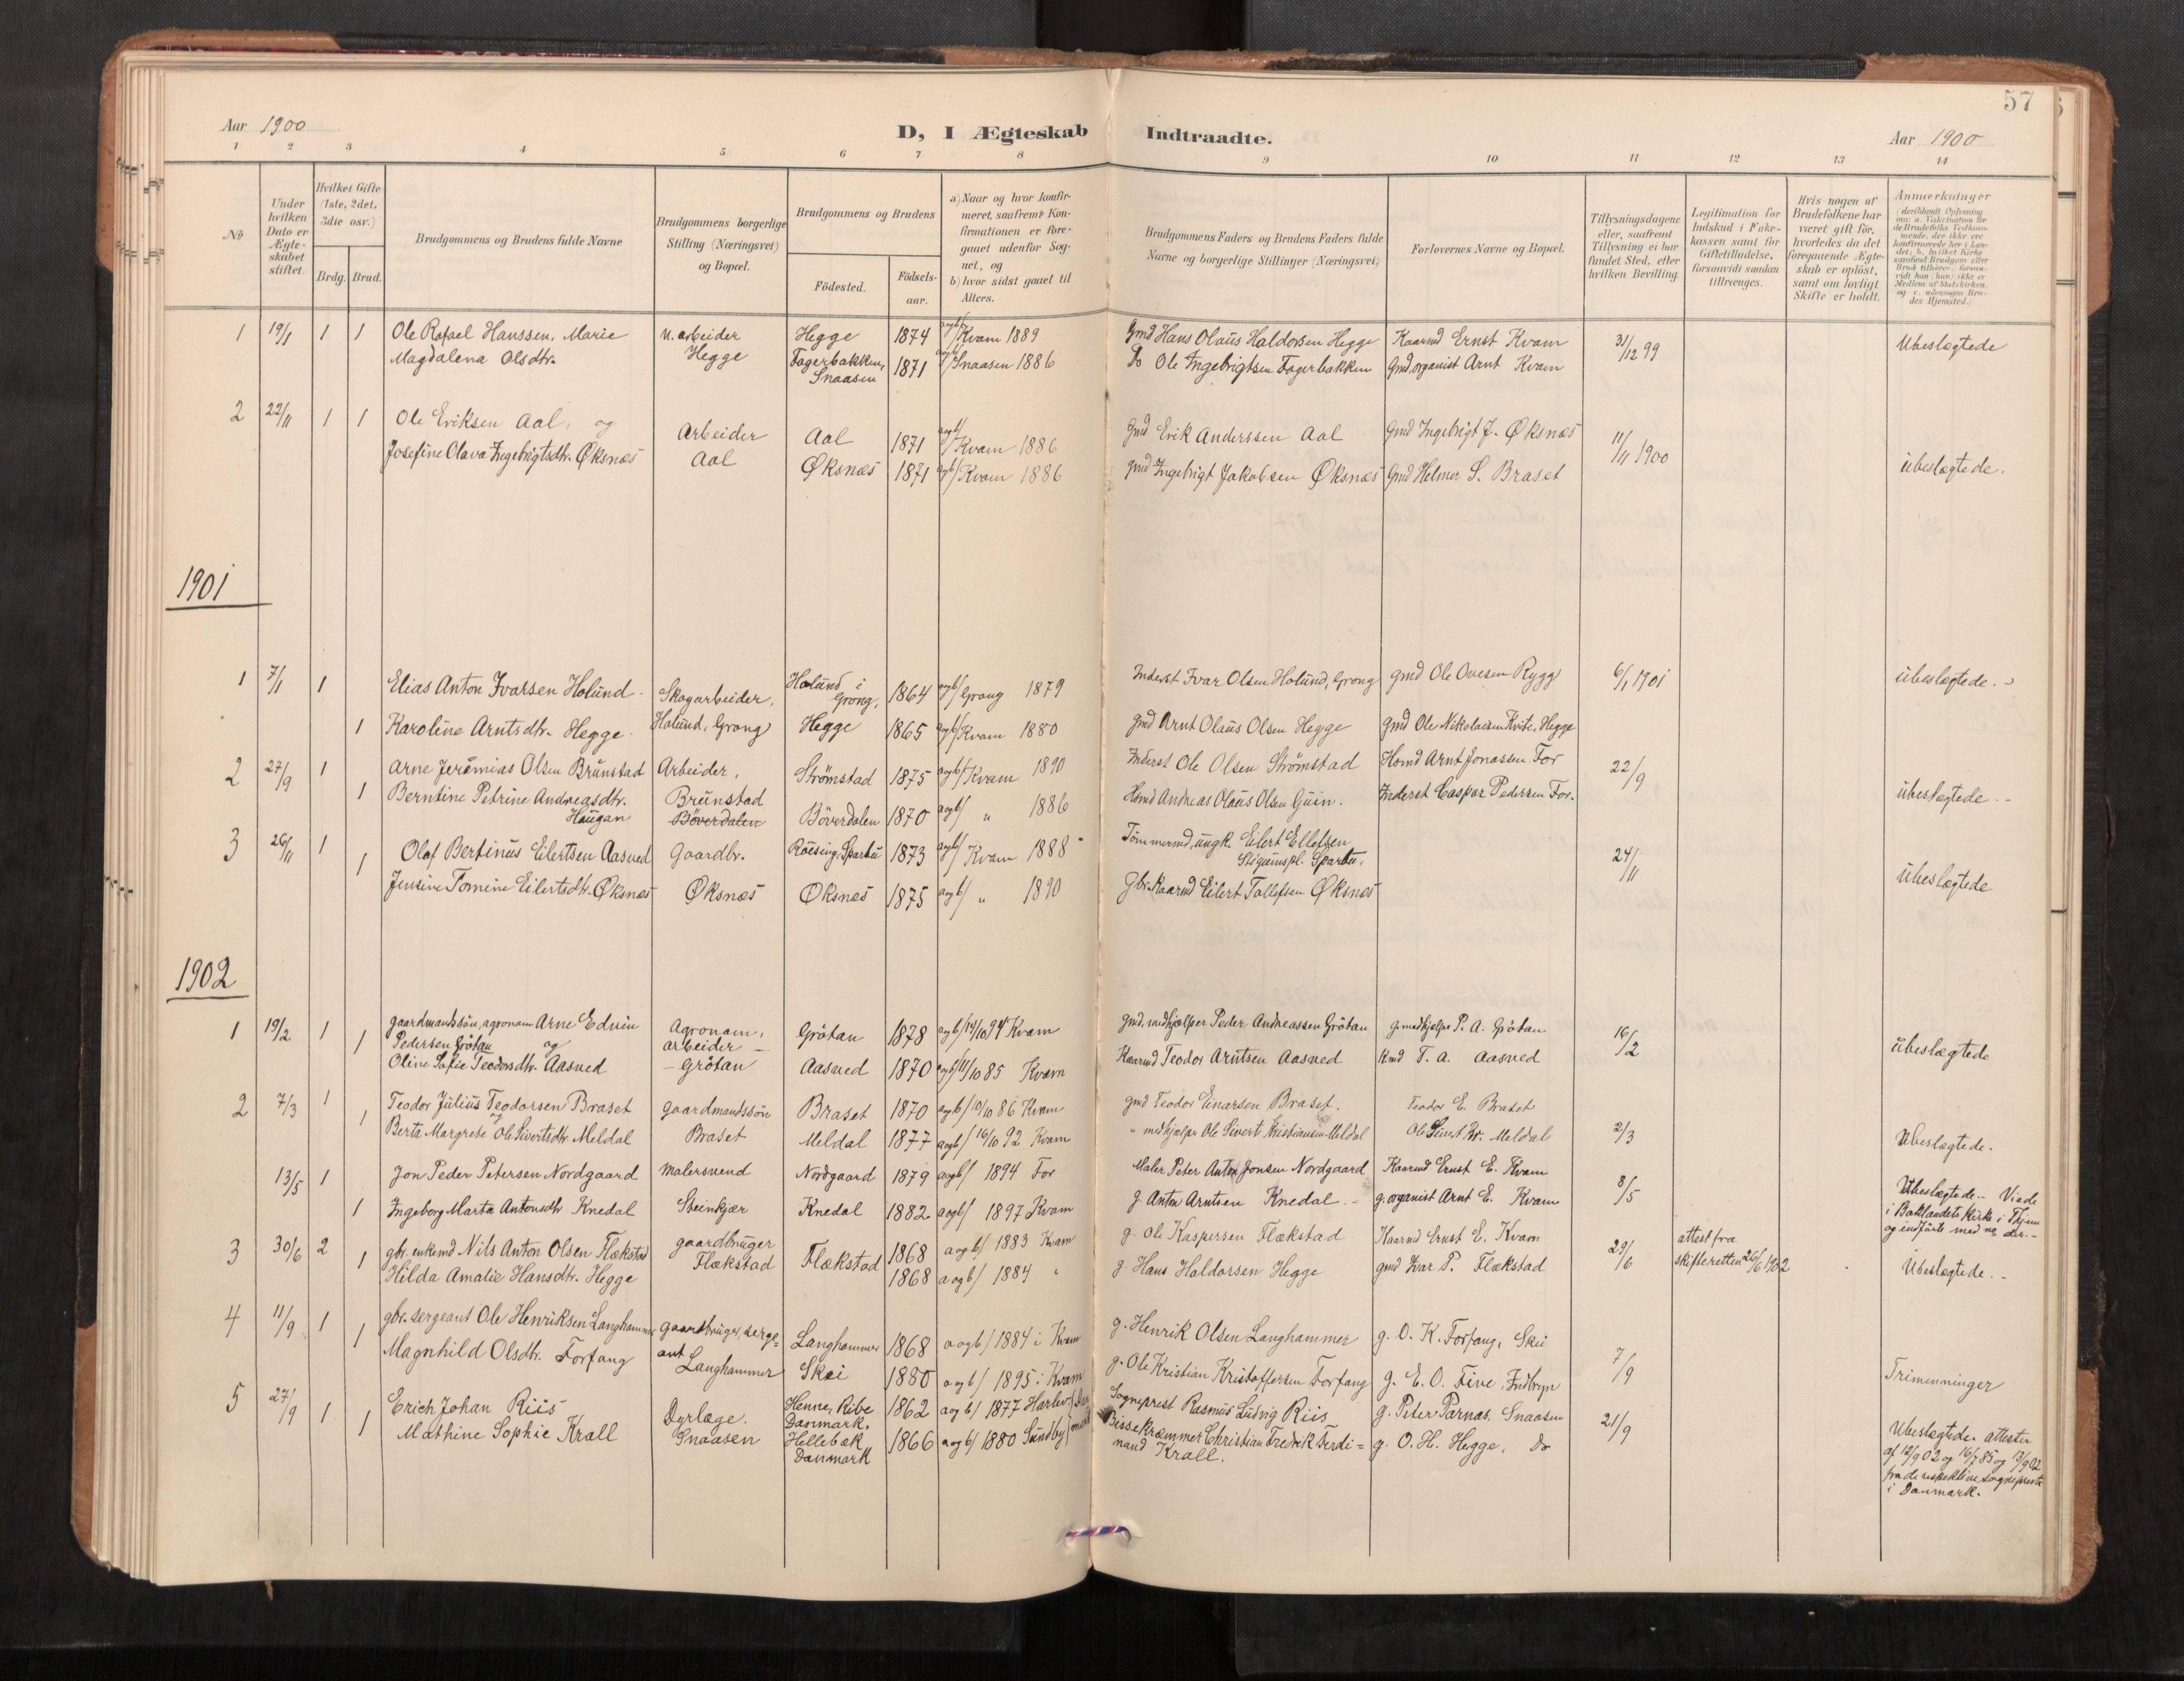 57
Aar 1900
D, I Ægteskab Indtraadte.
Aar 1900
1 2 3 4 5 6 7 8 9 10 11 12 13 14
No
Under hvilken Dato er Ægteskabet stiftet.
Hvilket Gifte (1ste, 2det, 3die osv.)
Brdg. Brud.
Brudgommens og Brudens fulde Navne
Brudgommens borgerlige Stilling (Næringsvei) og Bopæl.
Brudgommens og Brudens
Födested.
Födsels-aar.
a) Naar og hvor konfirmeret, saafremt Konfirmationen er foregaaet udenfor Sognet, og
b) hvor sidst gaaet til Alters.
Brudgommens Faders og Brudens Faders fulde Navne og borgerlige Stillinger (Næringsvei)
Forlovernes Navne og Bopæl.
Tillysningsdagene eller, saafremt Tillysning ei har fundet Sted, efter hvilken Bevilling.
Legitimation for Indskud i Enkekassen samt for Giftetilladelse, forsaavidt saadan tiltrænges.
Hvis nogen af Brudefolkene har været gift för, hvorledes da det foregaaende Ægteskab er oplöst, samt om lovligt Skifte er holdt.
Anmærkninger
1 19/1 1 1 Ole Rafael Hanssen, Marie u. arbeider Hegge 1874 a og b/ Kvam 1889 Gmd Hans Olaus Haldorsen Hegge Kaarmd Ernst Kvam 31/12 99 Ubeslægtede
Magdalena Olsdtr. Hegge Fagerbakken, Snaasen 1871 a og b/ Snaasen 1886 Do Ole Ingebrigtsen Fagerbakken Gmd. organist Arnt Kvam
2 22/11 1 1 Ole Eriksen Aal, og Arbeider Aal 1871 a og b/ Kvam 1886 Gmd Erik Anderssen Aal Gmd Ingebrigt J. Øksnæs 11/11 1900
Josefine Olava Ingebrigtsdtr. Øksnæs Aal Øksnæs 1871 a og b/ Kvam 1886 Gmd Ingebrigt Jakobsen Øksnæs Gmd Helmer S. Braset ubeslægtede.
1901
1 7/1 1 Elias Anton Ivarsen Holund Skogarbeider, Holund i Grong, 1864 a og b/ Grong 1879 Inderst Ivar Olsen Holund, Grong gmd Ole Ovesen Rygg 6/1 1901 ubeslægtede.
1 Karoline Arntsdtr. Hegge Holund, Grong Hegge 1865 a og b/ Kvam 1880 gmd Arnt Olaus Olsen Hegge gmd Ole Nikolaisen Kvite, Hegge
2 27/9 1 Arne Jeremias Olsen Brunstad Arbeider, Strömstad 1875 a og b/ Kvam 1890 Inderst Ole Olsen Strömstad Hsmd Arnt Jonassen For 22/9
1 Berntine Petrine Andreasdtr. Haugan Brunstad Böverdalen Böverdalen 1870 a og b/ " 1886 Hsmd Andreas Olaus Olsen Guin. Inderst Caspar Pedersen For. ubeslægtede
3 26/11 1 Olof Bertinus Eilertsen Aasved Gaardbr. Röising, Sparbu 1873 a og b/ Kvam 1888 Tömmermd, ungk. Eilert Ellefsen Sparbu, 24/11
1 Jensine Tomine Eilertsdtr. Øksnæs Øksnæs Øksnes 1875 a og b/ " 1890 Gbr. Kaarmd Eilert Tollefsen Øksnæs ubeslægtede
1902
1 19/2 1 1 gaardmandssøn, agronom Arne Edvin Pedersen Grötan og Agronom, arbeider Grötan 1878 a og b/ 14/10 94 Kvam Gmd. medhjælper Peder Andreassen Grötan g. medhjelper P. A. Grötan 16/2
Oline Sofie Teodorsdtr. Aasved Grötan Aasved 1870 a og b/ 11/10 85 Kvam Kaarmd Teodor Arntsen Aasved Kmd T. A. Aasved ubeslægtede
2 7/3 1 Teodor Julius Teodorsen Braset og gaardmandssön Braset 1870 a og b/ 10/10 86 Kvam gmd Teodor Einarsen Braset. Teodor E. Braset
1 Berta Margrete Ole Sivertsdtr. Meldal Braset Meldal 1877 a og b/ 16/10 92 Kvam " medhjelper Ole Sivert Kristiansen Meldal Ole Sivert Kr. Meldal 2/3 Ubeslægtede.
13/5 1 Jon Peder Petersen Nordgaard Malersvend Nordgaard 1879 a og b/ 1894 For Maler Peter Anton Jonsen Nordgaard Kaarmd Ernst E. Kvam 8/5
1 Ingeborg Marta Antonsdtr Knedal Steinkjær Knedal 1882 a og b/ 1897 Kvam g Anton Arntsen Knedal g. organist Arnt E. Kvam Ubeslægtede. Viede i Baklandets Kirke i Thjem og indförte med no der.
3 30/6 2 gbr. enkemd Nils Anton Olsen Flækstad gaardbruger Flækstad 1868 a og b/ 1883 Kvam g. Ole Kaspersen Flækstad Kaarmd Ernst E. Kvam 29/6 attest fra skifteretten 26/6 1902
1 Hilda Amalie Hansdtr. Hegge Flækstad 1868 a og b/ 1884 " g. Hans Haldorsen Hegge gmd Ivar P. Flækstad Ubeslægtede.
4 11/9 1 gbr. sergeant Ole Henriksen Langhammer gaardbruger, sergeant Langhammer 1868 a og b/ 1884 i Kvam g. Henrik Olsen Langhammer g. O. K. Forfang, Skei 7/9
1 Magnhild Olsdtr. Forfang Langhammer Skei 1880 a og b/ 1895 i Kvam g. Ole Kristian Kristoffersen Forfang g. E. O. Five, Indbryn Trimenninger
5 27/9 1 Erich Johan Riis Dyrlæge. Henne, Ribe Danmark. 1862 a og b/ 1877 Harlev Sogneprest Rasmus Ludvig Riis g. Peter Parnas. Snaasen 21/9
1 Mathine Sophie Krall Snaasen Hellebæk Danmark 1866 a og b/ 1880 Sundby Christian Fredrik Ferdinand Krall. g. O. H. Hegge, Do Ubeslægtede. attester af 12/9 02 og 16/7 85 og 13/9 02 fra de respektive sogneprester i Danmark.